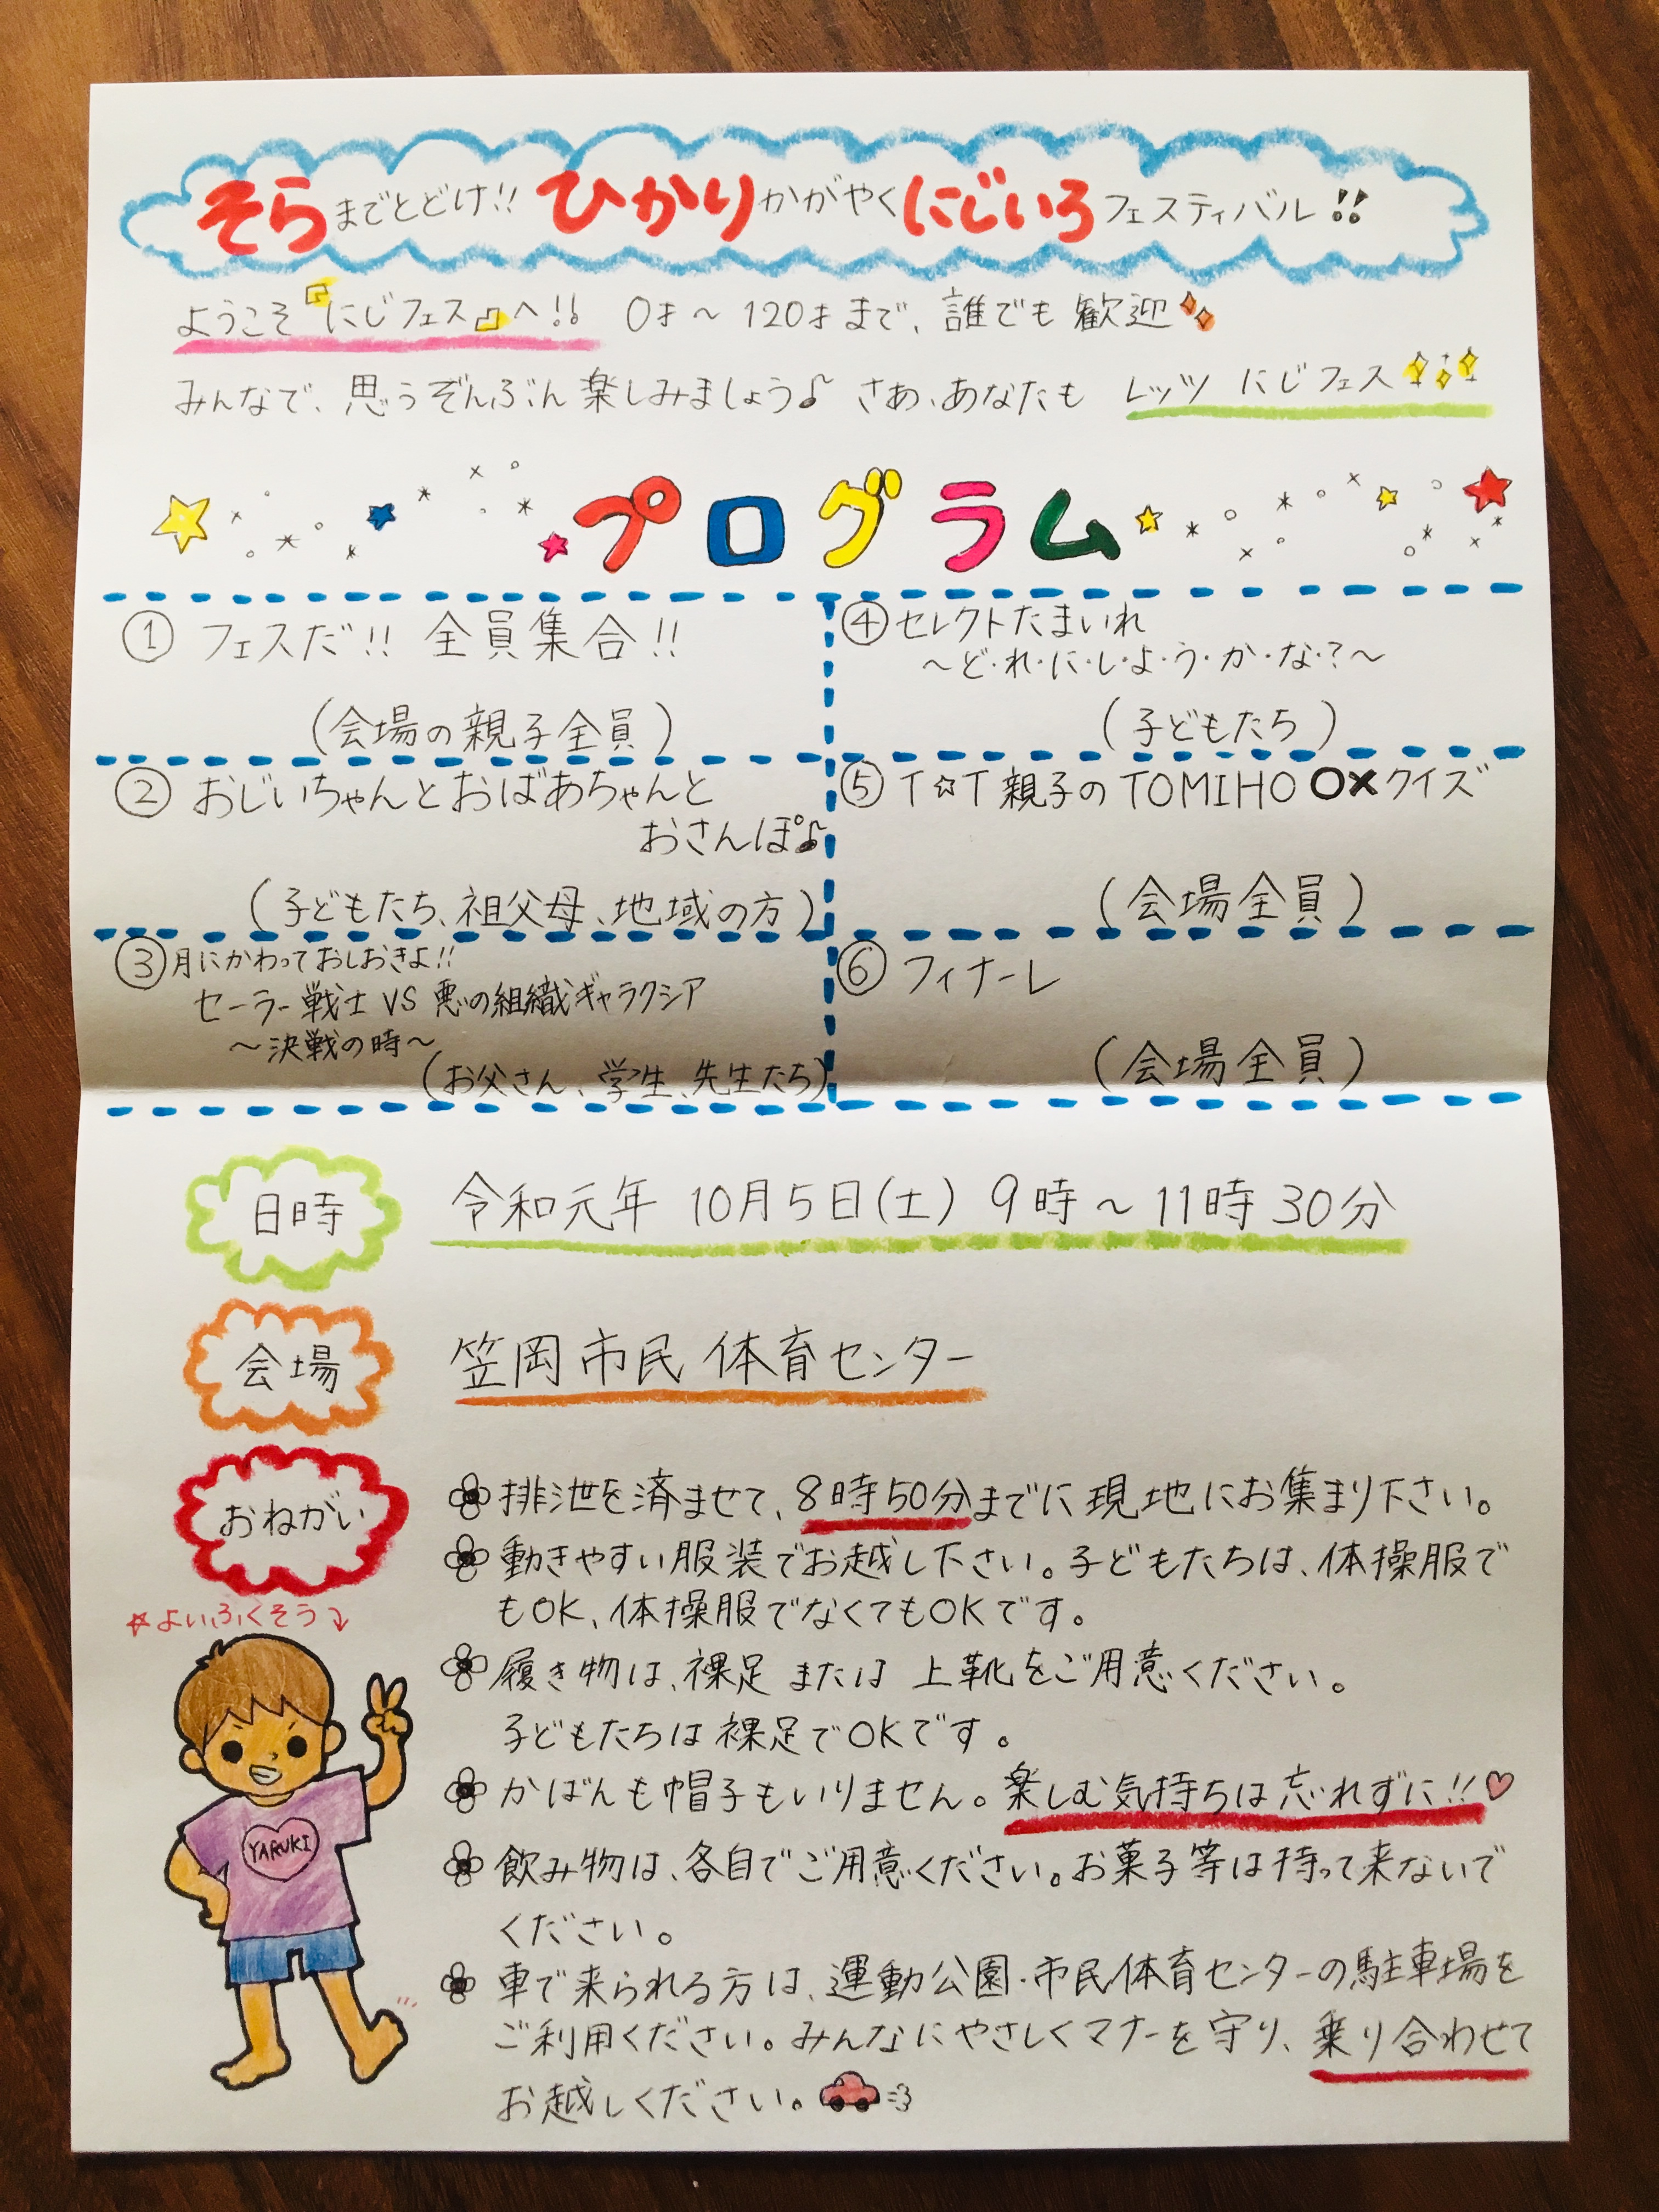 そらまでとどけ!! ひかりかがやくにじいろフェスティバル!!
ようこそ『にじフェス』へ!! 0才〜120才まで、誰でも歓迎
みんなで、思うぞんぶん楽しみましょう♪ さあ、あなたも レッツ にじフェス
プログラム
① フェスだ!! 全員集合!!
(会場の親子全員)
② おじいちゃんとおばあちゃんと
おさんぽ♪
(子どもたち、祖父母、地域の方)
③ 月にかわっておしおきよ!!
セーラー戦士 VS 悪の組織ギャラクシア
〜決戦の時〜
(お父さん、学生、先生たち)
④ セレクトたまいれ
〜ど・れ・に・し・よ・う・か・な・?〜
(子どもたち)
⑤ T☆T 親子のTOMIHO ○×クイズ
(会場全員)
⑥ フィナーレ
(会場全員)
日時 令和元年 10月5日(土) 9時〜11時30分
会場 笠岡市民体育センター
おねがい
☆よいふくそう↴
YARUKI
排泄を済ませて、8時50分までに現地にお集まり下さい。
動きやすい服装でお越し下さい。子どもたちは、体操服で
もOK、体操服でなくてもOKです。
履き物は、裸足 または 上靴をご用意ください。
子どもたちは裸足でOKです。
かばんも帽子もいりません。楽しむ気持ちは忘れずに!!♡
飲み物は、各自でご用意ください。お菓子等は持って来ないで
ください。
車で来られる方は、運動公園・市民体育センターの駐車場を
ご利用ください。みんなにやさしくマナーを守り、乗り合わせて
お越しください。